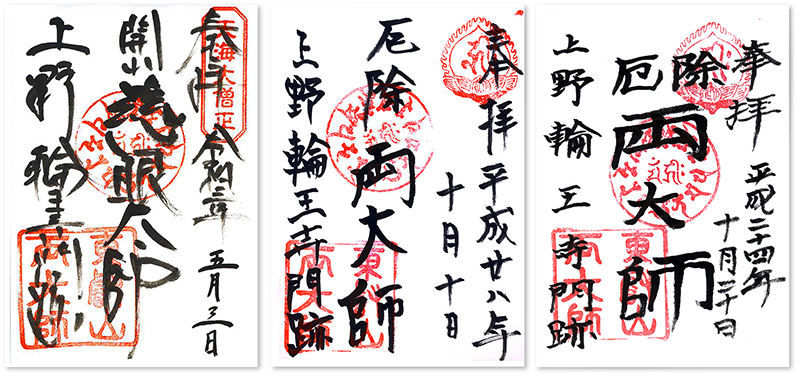 天海大僧正
奉拝 令和 年 五月三日
開山 慈眼大師
上野輪王寺門跡
東叡山
両大師
奉拝 平成廿八年
十月十日
厄除 両大師
上野輪王寺門跡
東叡山
両大師
奉拝 平成二十四年
十月 十日
厄除
両大師
上野輪王寺門跡
東叡山
両大師